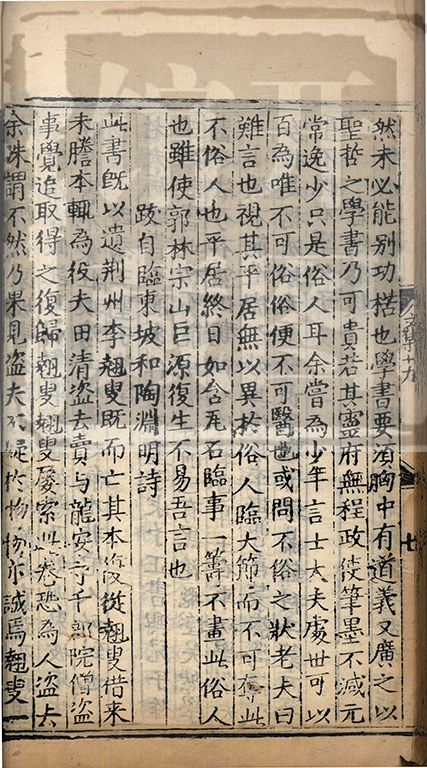 然未必能别功楛也學書要須胸中有道義又廣之以
聖哲之學書乃可貴若其靈府無程政使筆墨不減元
常逸少只是俗人耳余嘗為少年言士大夫處世可以
百為唯不可俗俗便不可醫也或問不俗之狀老夫曰
難言也視其平居無以異於俗人臨大節而不可奪此
不俗人也平居終日如含瓦石臨事一籌不畫此俗人
也雖使郭林宗山巨源復生不易吾言也
跋自臨東坡和陶淵明詩
此書既以遺荆州李翹叟既而亡其本復從翹叟借來
未謄本輒為役夫田清盗去賣與龍安寺千部院僧盗
事覺追取得之復歸翹叟翹叟屢索此卷恐為人盗去
余殊謂不然乃果見盗夫不疑於物物亦誠焉翹叟一
七